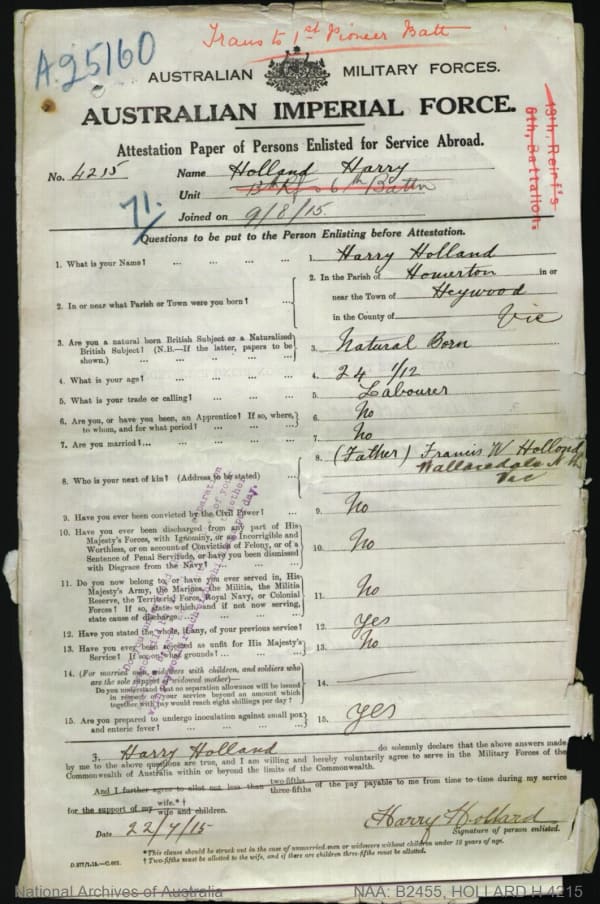 Trans to 1st Pioneer Batt
A25160
AUSTRALIAN MILITARY FORCES.
AUSTRALIAN IMPERIAL FORCE.
Attestation Paper of Persons Enlisted for Service Abroad.
13th, Reinf's
6th, Battalion.
No. 4215
Name Holland Harry
Unit 13th Rfs 6th Battn
Joined on 9/8/15.
71.
Questions to be put to the Person Enlisting before Attestation.
1. What is your Name? ... ... ... ... 1. Harry Holland
2. In or near what Parish or Town were you born? ...
2. In the Parish of Homerton in or
near the Town of Heywood
in the County of Vic
3. Are you a natural born British Subject or a Naturalised
British Subject? (N.B.—If the latter, papers to be
shown.) ... ... ... ... ...
3. Natural Born
4. What is your age? ... ... ... ... 4. 24 1/12
5. What is your trade or calling? ... ... ... 5. Labourer
6. Are you, or have you been, an Apprentice? If so, where,
to whom, and for what period? ... ... ...
6. No
7. Are you married?... ... ... ... ... 7. No
8. Who is your next of kin? (Address to be stated) ...
8. (Father) Francis W Holland
Wallacedale
Vic
9. Have you ever been convicted by the Civil Power? ... 9. No
10. Have you ever been discharged from any part of His
Majesty's Forces, with Ignominy, or as Incorrigible and
Worthless, or on account of Conviction of Felony, or of a
Sentence of Penal Servitude, or have you been dismissed
with Disgrace from the Navy? ... ... ...
10. No
11. Do you now belong to, or have you ever served in, His
Majesty's Army, the Marines, the Militia, the Militia
Reserve, the Territorial Force, Royal Navy, or Colonial
Forces? If so, state which, and if not now serving,
state cause of discharge ... ... ...
11. No
12. Have you stated the whole, if any, of your previous service? 12. Yes
13. Have you ever been rejected as unfit for His Majesty's
Service? If so, on what grounds? ... ... ...
13. No
14. (For married men, widowers with children, and soldiers who
are the sole support of widowed mother)—
Do you understand that no separation allowance will be issued
in respect of your service beyond an amount which
together with pay would reach eight shillings per day?
14.
15. Are you prepared to undergo inoculation against small pox
and enteric fever? ... ... ... ...
15. Yes
I, Harry Holland do solemnly declare that the above answers made
by me to the above questions are true, and I am willing and hereby voluntarily agree to serve in the Military Forces of the
Commonwealth of Australia within or beyond the limits of the Commonwealth.
And I further agree to allot not less than two-fifths three-fifths of the pay payable to me from time to time during my service
for the support of my wife.*† wife and children.
Date 22/7/15
Harry Hollard
Signature of person enlisted.
*This clause should be struck out in the case of unmarried men or widowers without children under 18 years of age.
†Two-fifths must be allotted to the wife, and if there are children three-fifths must be allotted.
National Archives of Australia
NAA: B2455, HOLLARD H 4215